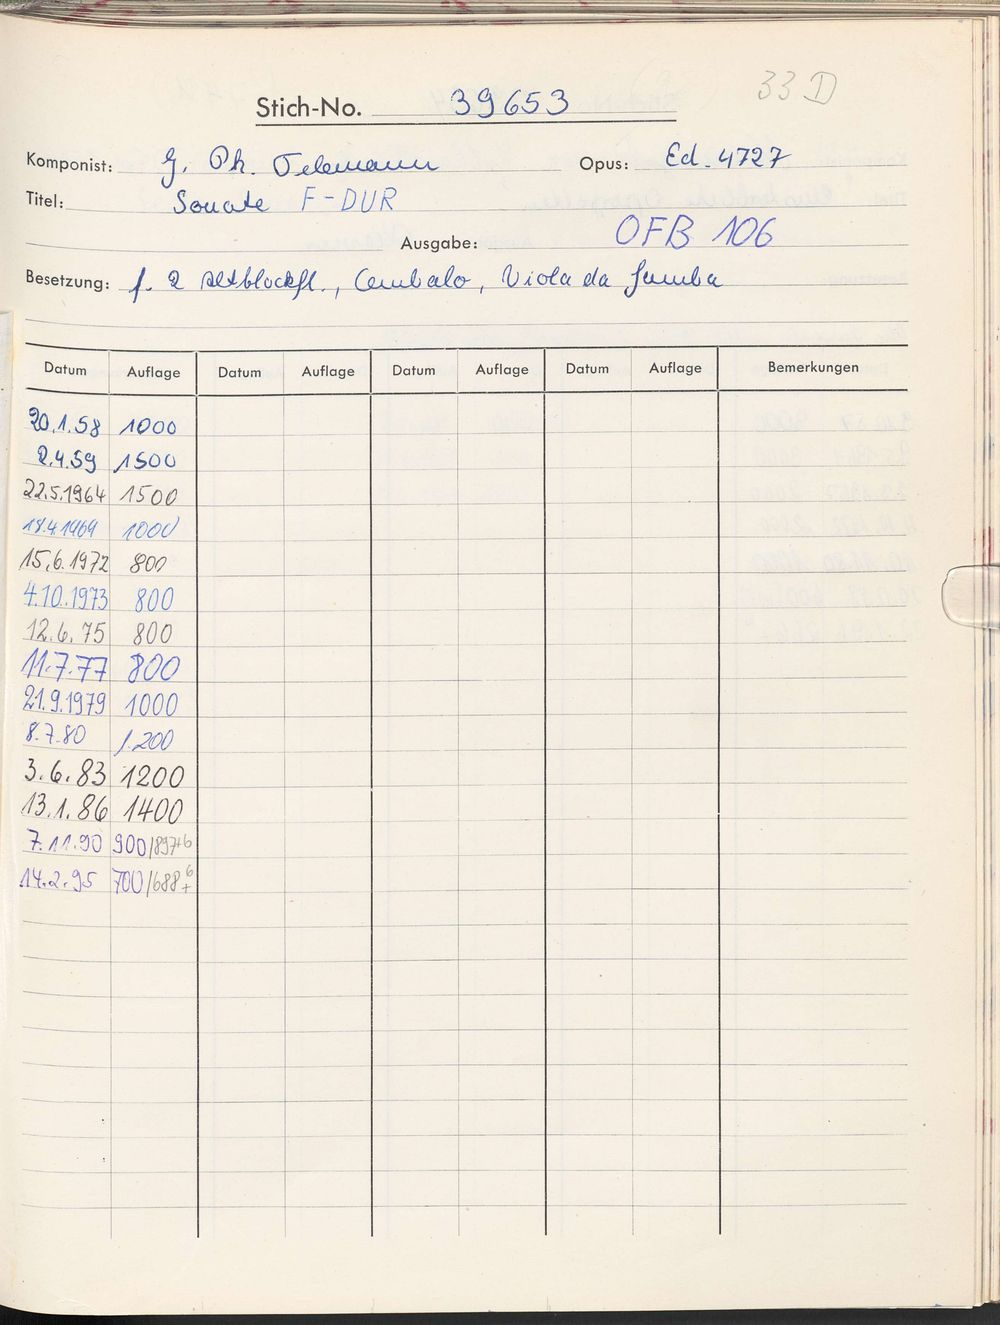 33 D
Stich-No. 39653
Komponist: G. Ph. Telemann Opus: Ed. 4727
Titel: Sonate F-DUR
Ausgabe: OFB 106
Besetzung: f. 2 Altblockfl., Cembalo, Viola da Gamba
Datum Auflage Datum Auflage Datum Auflage Datum Auflage Bemerkungen
20.1.58 1000
2.4.59 1500
22.5.1964 1500
18.4.1969 1000
15.6.1972 800
4.10.1973 800
12.6.75 800
11.7.77 800
21.9.1979 1000
8.7.80 1.200
3.6.83 1200
13.1.86 1400
7.11.90 900/897+6
14.2.95 700/688+6